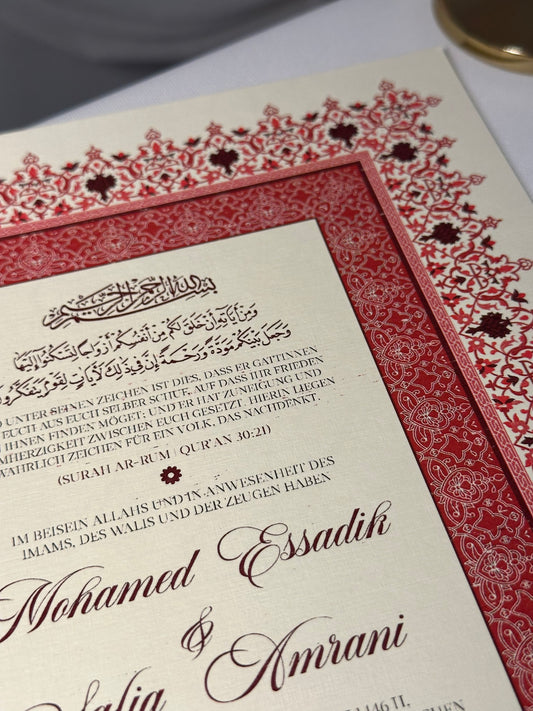 بسم الله الرحمن الرحيم
وَمِنْ آيَاتِهِ أَنْ خَلَقَ لَكُم مِّنْ أَنفُسِكُمْ أَزْوَاجًا لِّتَسْكُنُوا إِلَيْهَا
وَجَعَلَ بَيْنَكُم مَّوَدَّةً وَرَحْمَةً إِنَّ فِي ذَلِكَ لَآيَاتٍ لِّقَوْمٍ يَتَفَكَّرُونَ
UNTER SEINEN ZEICHEN IST DIES, DASS ER GATTINNEN
EUCH AUS EUCH SELBER SCHUF, AUF DASS IHR FRIEDEN
IHNEN FINDEN MÖGET; UND ER HAT ZUNEIGUNG UND
MHERZIGKEIT ZWISCHEN EUCH GESETZT. HIERIN LIEGEN
WAHRLICH ZEICHEN FÜR EIN VOLK, DAS NACHDENKT.
(SURAH AR-RUM | QUR'AN 30:21)
IM BEISEIN ALLAHS UND IN ANWESENHEIT DES
IMAMS, DES WALIS UND DER ZEUGEN HABEN
Mohamed Essadik
&
Salia Amrani
1446 II,